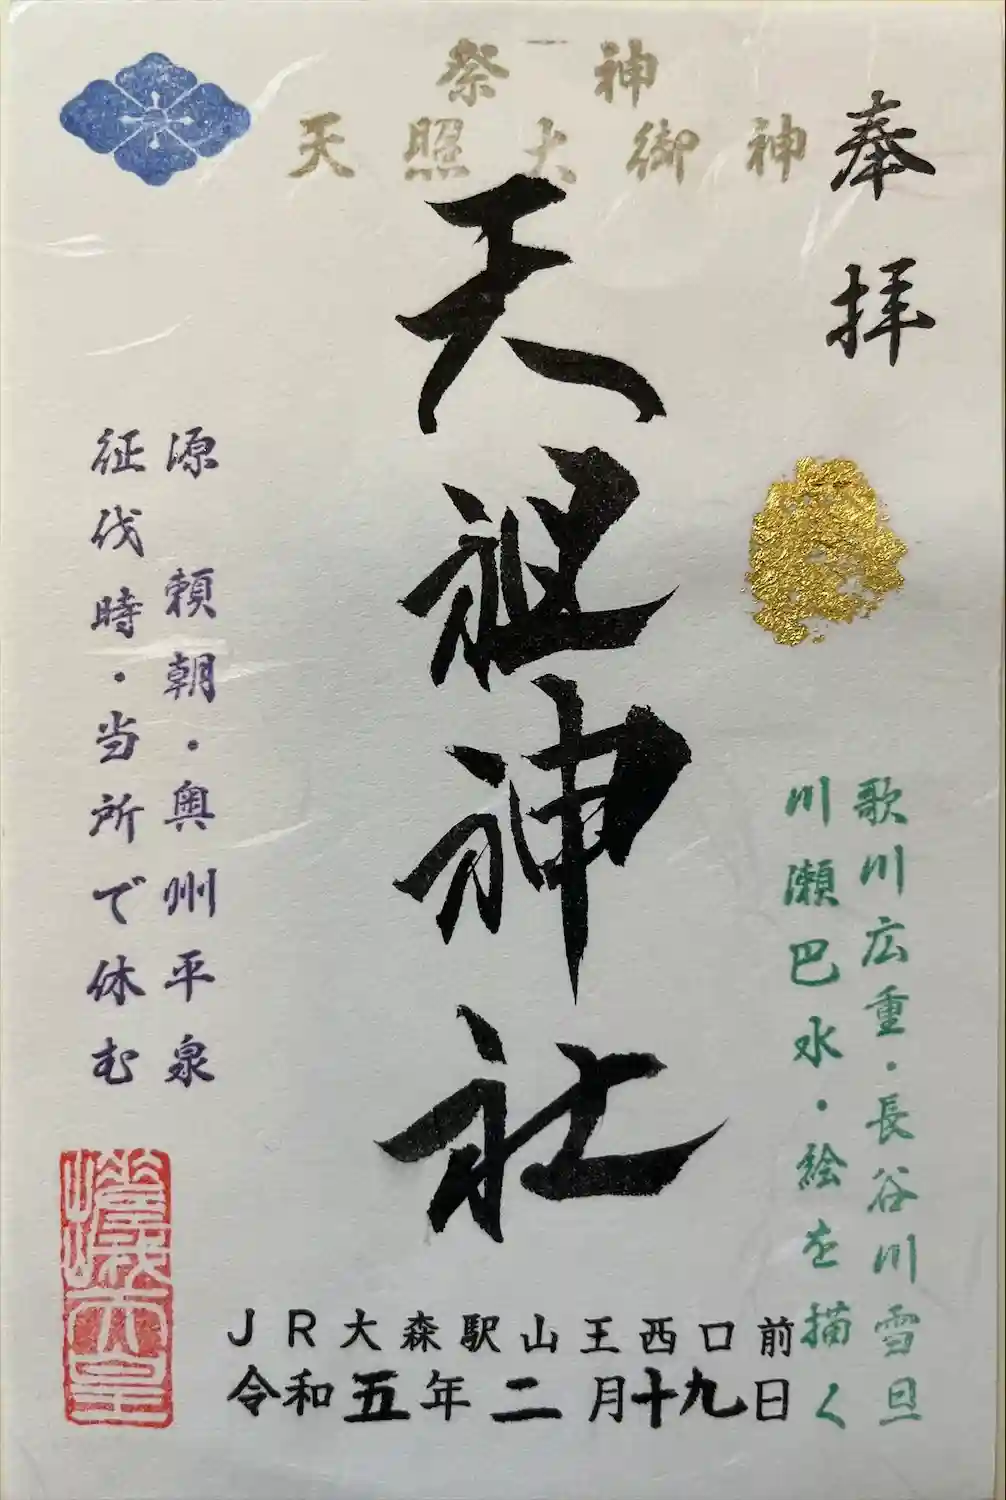 奉拝
祭神
天照大御神
天祖神社
歌川広重・長谷川雪旦
川瀬巴水・絵を描く
源 頼朝・奥州平泉
征伐時・当所で休む
JR大森駅山王西口前
令和五年二月十九日